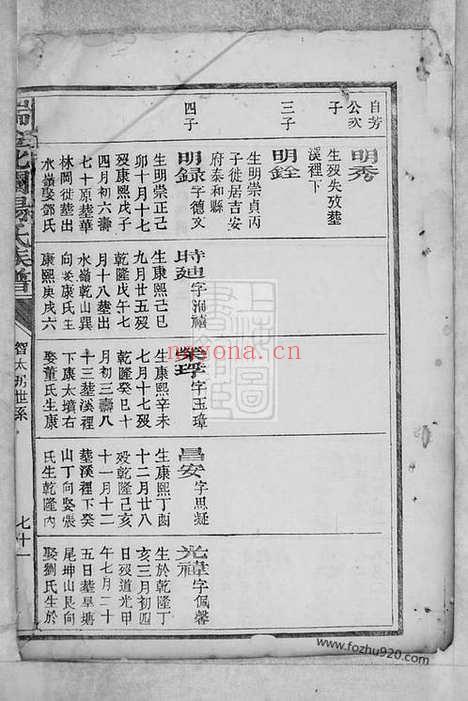 自芳
公次
子
明秀
生歿失攷塟
溪裡下
三子
明銓
生明崇貞丙
子徙居吉安
府泰和縣
四子
明録字德文
生明崇正己
卯十月十七
歿康熙戊子
四月初六壽
七十原塟華
林岡徙塟出
水嶺娶鄧氏
時廸字禧
生康熙己巳
九月廿五歿
乾隆戊午七
月十八塟出
水嶺乾山巽
向娶康氏生
康熙庚戌六
榮字玉璋
生康熙辛未
七月十七歿
乾隆癸巳十
月初三壽八
十三塟溪裡
下康太墳右
娶董氏生康
昌安字思凝
生康熙丁酉
十二月廿八
歿乾隆己亥
十一月十二
塟溪裡下癸
山丁向娶張
氏生乾隆內
光禕字佩馨
生於乾隆丁
亥三月初四
日歿道光甲
午七月二十
五日塟旱塘
尾坤山艮向
娶劉氏生於
氏族譜
智太初世系
七十一
nayona.cn
www.fozhu920.com